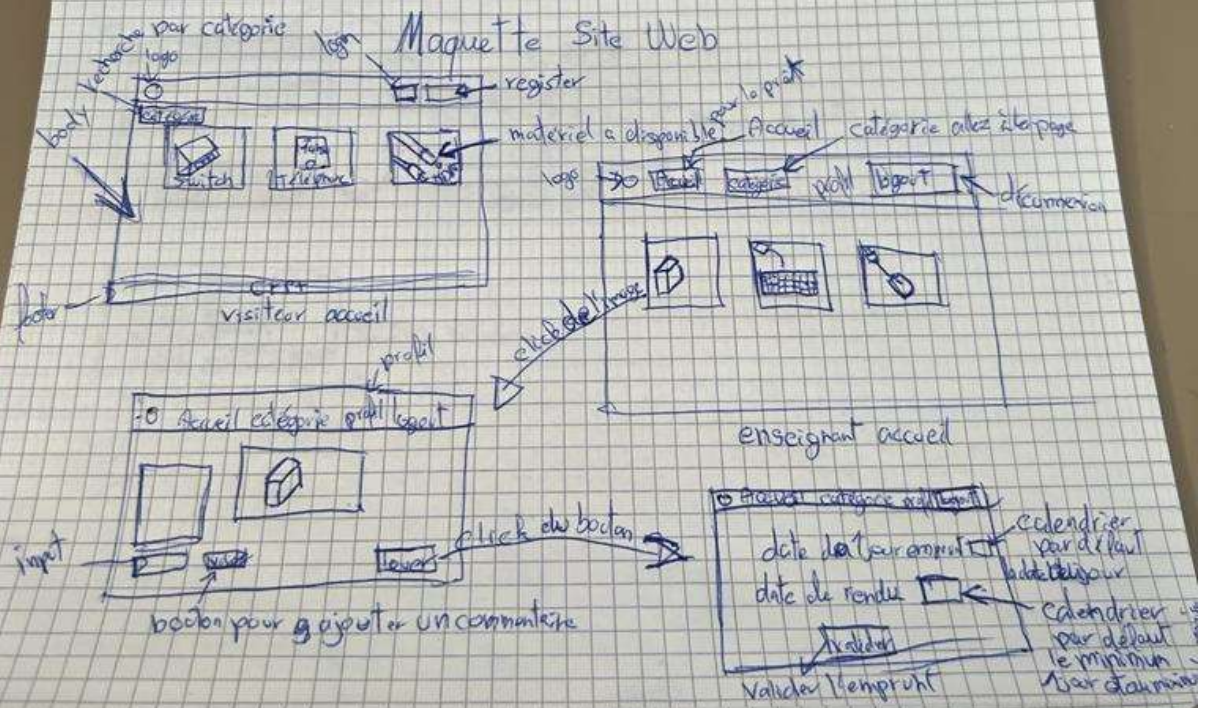 Maquette Site Web
recherche par catégorie
logo
login
register
body
catégorie
Switch
Téléphone
matériel a disponible
footer
visiteur accueil
Accueil
catégorie allez à la page
logo
Accueil
catégorie
profil
logout
déconnexion
click de l'image
enseignant accueil
profil
Accueil catégorie profil logout
input
louer
click du bouton
bouton pour ajouter un commentaire
Accueil catégorie profil logout
date du jour emprunt
calendrier
par défaut
date de rendu
calendrier
par défaut
le minimum
valider
Valider l'emprunt